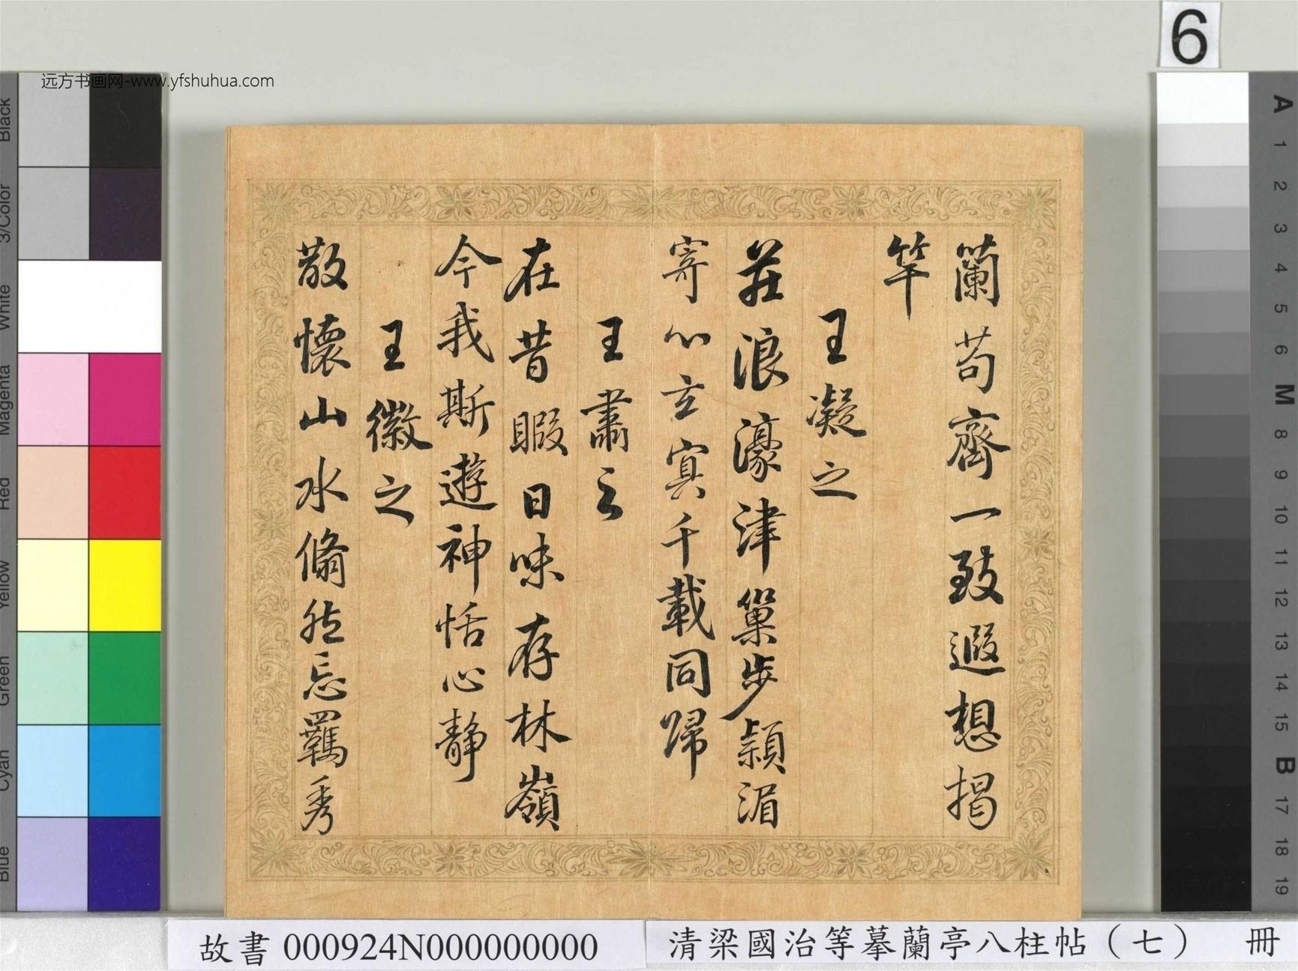 6
远方书画网-www.yfshuhua.com
蘭苟齊一致遐想揭
竿
王凝之
莊浪濠津巢步潁湄
寄心玄冥千載同歸
王肅之
在昔暇日味存林嶺
今我斯遊神恬心靜
王徽之
散懷山水翛然忘羈秀
Black
3/Color
White
Magenta
Red
Yellow
Green
Cyan
Blue
A
1
2
3
4
5
6
M
8
9
10
11
12
13
14
15
B
17
18
19
故書 000924N000000000
清梁國治等摹蘭亭八柱帖（七） 冊